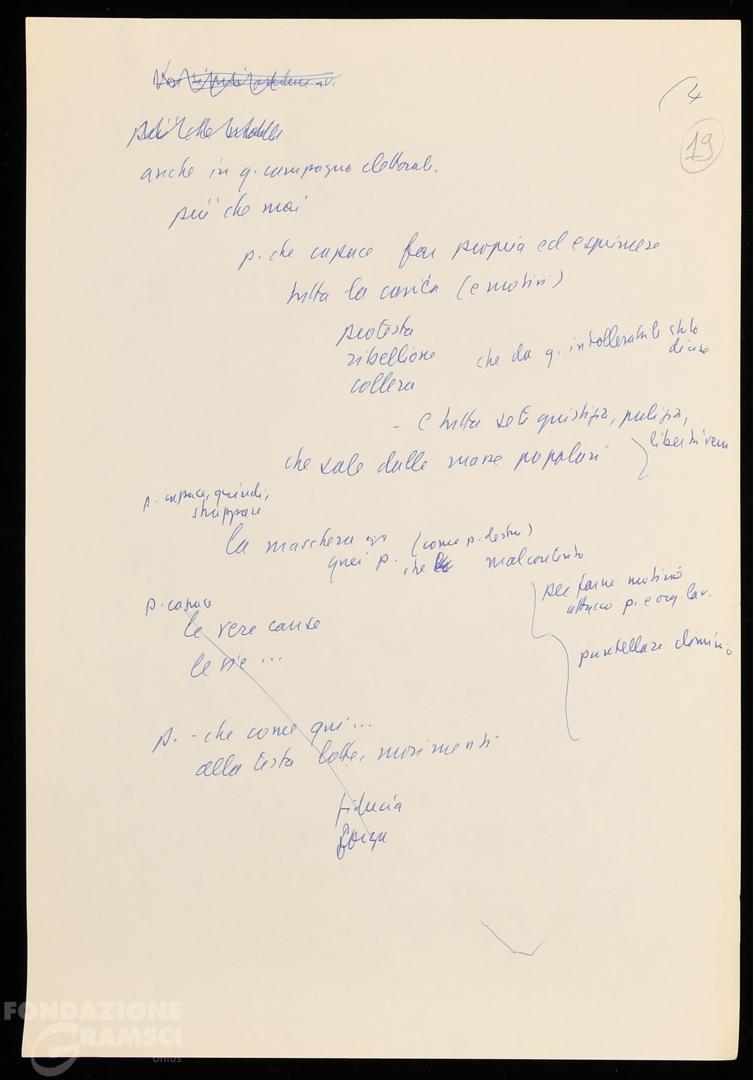 (4
19
anche in q. campagna elettorale,
più che mai
p. che capace far propria ed esprimere
tutta la carica (e motivi)
protesta
ribellione
collera
che da q. intollerabile stato
di cose
- e tutta sete giustizia, pulizia,
libertà vera
che sale dalle masse popolari
p. capace, quindi,
strappare
la maschera
quei p.
(come p. destra)
che malcontento
per farne motivo
attacco p. e org. lav.
puntellare dominio
p. capace
le vere cause
le vie ...
p. - che come qui ...
alla testa lotte, movimenti
fiducia
forza
FONDAZIONE
GRAMSCI
onlus